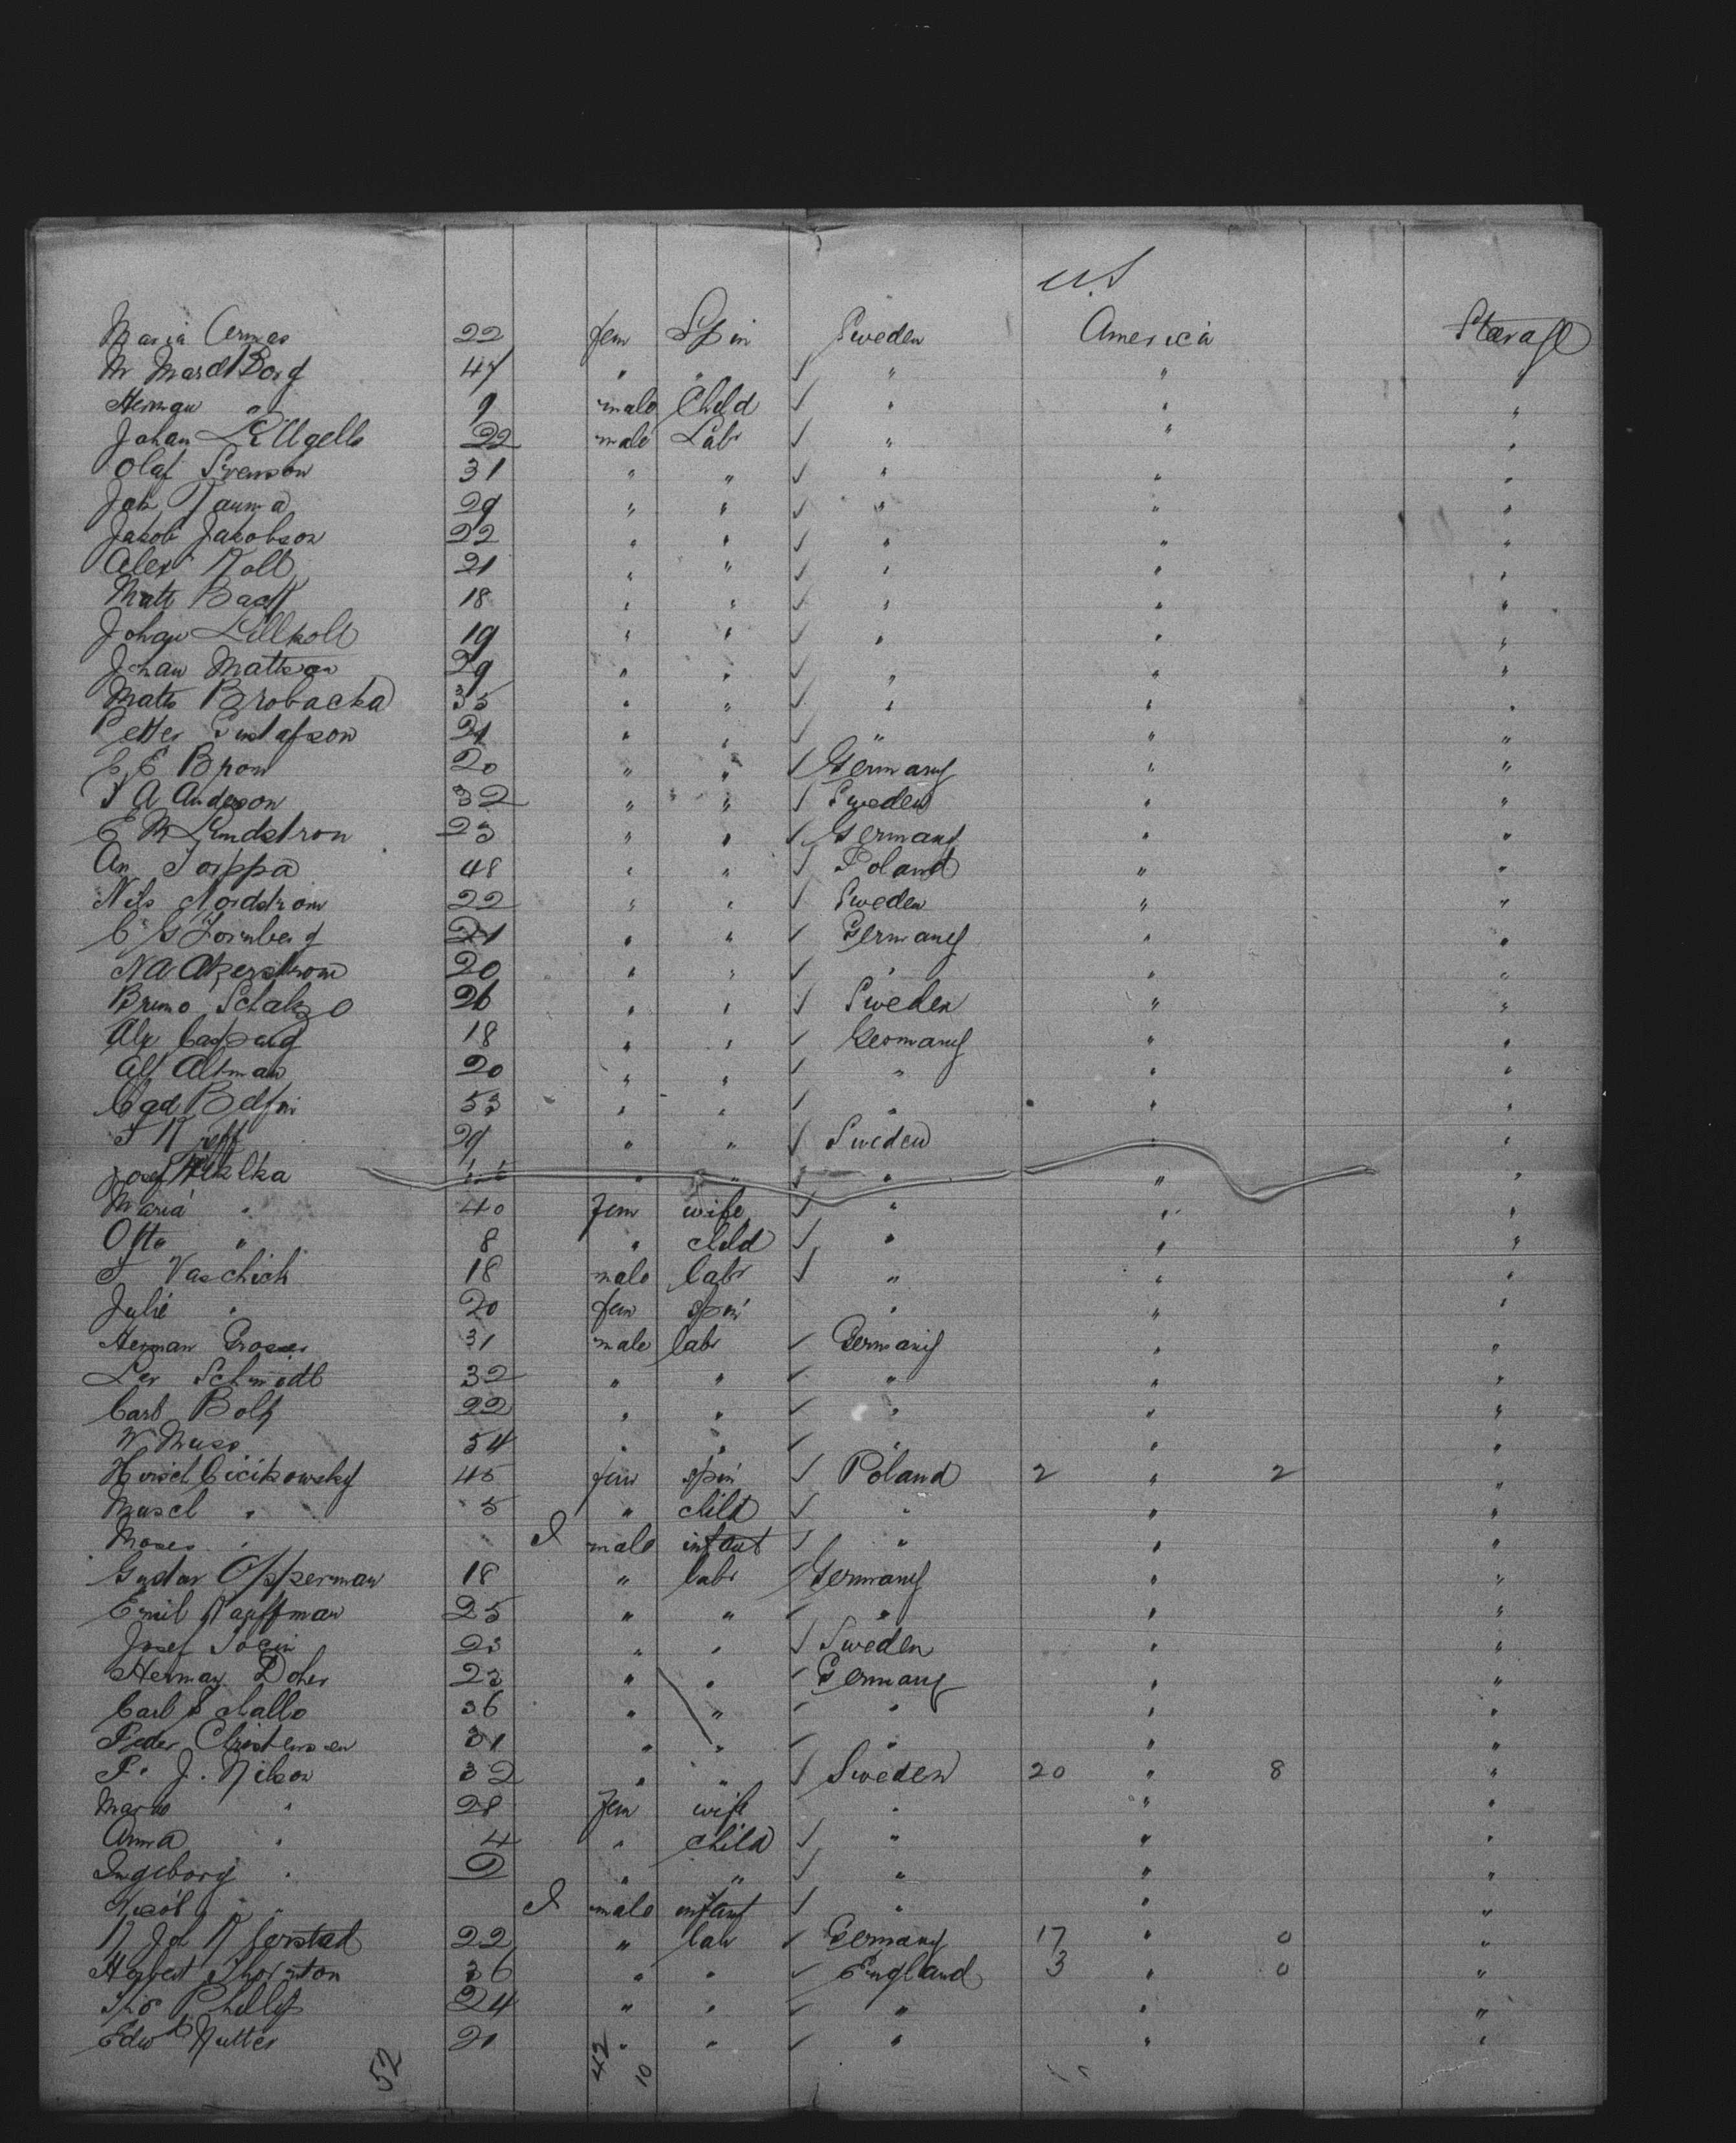 U.S
Maria 22 fem Spin Sweden America Stearage
M Mard Borg 47 " " ✓ " " "
Herman " 9 male Child ✓ " " "
Johan 22 male Labr ✓ " " "
Olaf Svenson 31 " " ✓ " " "
Joh Kauma 29 " " ✓ " " "
Jakob Jakobson 22 " " ✓ " " "
Alex Koll 21 " " ✓ " " "
Matt Back 18 " " ✓ " " "
Johan Lillkoll 19 " " ✓ " " "
Johan Mattson 29 " " ✓ " " "
Matts Brobacka 35 " " ✓ " " "
Petter Gustafson 21 " " ✓ " " "
E E 20 " " ✓ Germany " "
J A Anderson 32 " " ✓ Sweden " "
E M Lundstron 23 " " ✓ Germany " "
An Torppa 48 " " ✓ Poland " "
Nils Nordstrom 22 " " ✓ Sweden " "
C G Fornberg 21 " " ✓ Germany " "
N A Akerstrom 20 " " ✓ " " "
Bruno 26 " " ✓ Sweden " "
Alx 18 " " ✓ Germany " "
Alf Altman 20 " " ✓ " " "
53 " " ✓ " " "
29 " " ✓ Sweden " "
Josef " " ✓ " " "
Maria " 40 fem wife ✓ " " "
" 8 " child ✓ " " "
Vaschich 18 male labr ✓ " " "
Julié " 20 fem spin " " "
Herman 31 male labr ✓ Germany " "
Schmidt 32 " " ✓ " " "
Carl 22 " " ✓ " " "
W 54 " " ✓ " " "
Cicikowsky 45 fem spin ✓ Poland 2 " 2 "
" 5 " child ✓ " " "
Moses " I male infant ✓ " " "
Gustav Opperman 18 " labr ✓ Germany " "
Emil Kauffman 25 " " ✓ " " "
Josef Socin 23 " " ✓ Sweden " "
Herman 23 " " ✓ Germany " "
Carl Schallo 36 " " ✓ " " "
Peder Christensen 31 " " ✓ " " "
P. J. Nilson 32 " " ✓ Sweden 20 " 8 "
" 28 fem wife " " "
Anna " 4 " child ✓ " " "
Ingeborg " 2 " " ✓ " " "
" I male infant ✓ " " "
22 " labr ✓ Germany 17 " 0 "
Herbert Thornton 36 " " ✓ England 3 " 0 "
Thos 24 " " ✓ " " "
Edwd Nutter 21 " " ✓ " " "
52 42 10